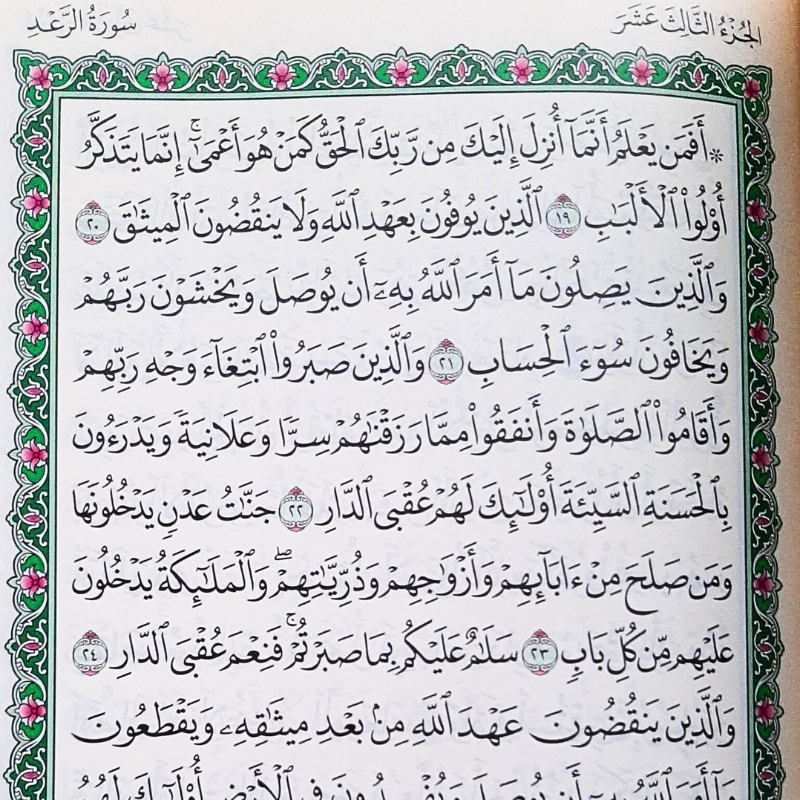 الجزء الثالث عشر
سورة الرعد
۞ أَفَمَن يَعْلَمُ أَنَّمَآ أُنزِلَ إِلَيْكَ مِن رَّبِّكَ ٱلْحَقُّ كَمَنْ هُوَ أَعْمَىٰٓۚ إِنَّمَا يَتَذَكَّرُ
أُو۟لُوا۟ ٱلْأَلْبَٰبِ ١٩ ٱلَّذِينَ يُوفُونَ بِعَهْدِ ٱللَّهِ وَلَا يَنقُضُونَ ٱلْمِيثَٰقَ ٢٠
وَٱلَّذِينَ يَصِلُونَ مَآ أَمَرَ ٱللَّهُ بِهِۦٓ أَن يُوصَلَ وَيَخْشَوْنَ رَبَّهُمْ
وَيَخَافُونَ سُوٓءَ ٱلْحِسَابِ ٢١ وَٱلَّذِينَ صَبَرُوا۟ ٱبْتِغَآءَ وَجْهِ رَبِّهِمْ
وَأَقَامُوا۟ ٱلصَّلَوٰةَ وَأَنفَقُوا۟ مِمَّا رَزَقْنَٰهُمْ سِرًّا وَعَلَانِيَةً وَيَدْرَءُونَ
بِٱلْحَسَنَةِ ٱلسَّيِّئَةَ أُو۟لَٰٓئِكَ لَهُمْ عُقْبَى ٱلدَّارِ ٢٢ جَنَّٰتُ عَدْنٍ يَدْخُلُونَهَا
وَمَن صَلَحَ مِنْ ءَابَآئِهِمْ وَأَزْوَٰجِهِمْ وَذُرِّيَّٰتِهِمْۖ وَٱلْمَلَٰٓئِكَةُ يَدْخُلُونَ
عَلَيْهِم مِّن كُلِّ بَابٍ ٢٣ سَلَٰمٌ عَلَيْكُم بِمَا صَبَرْتُمْۚ فَنِعْمَ عُقْبَى ٱلدَّارِ ٢٤
وَٱلَّذِينَ يَنقُضُونَ عَهْدَ ٱللَّهِ مِنۢ بَعْدِ مِيثَٰقِهِۦ وَيَقْطَعُونَ